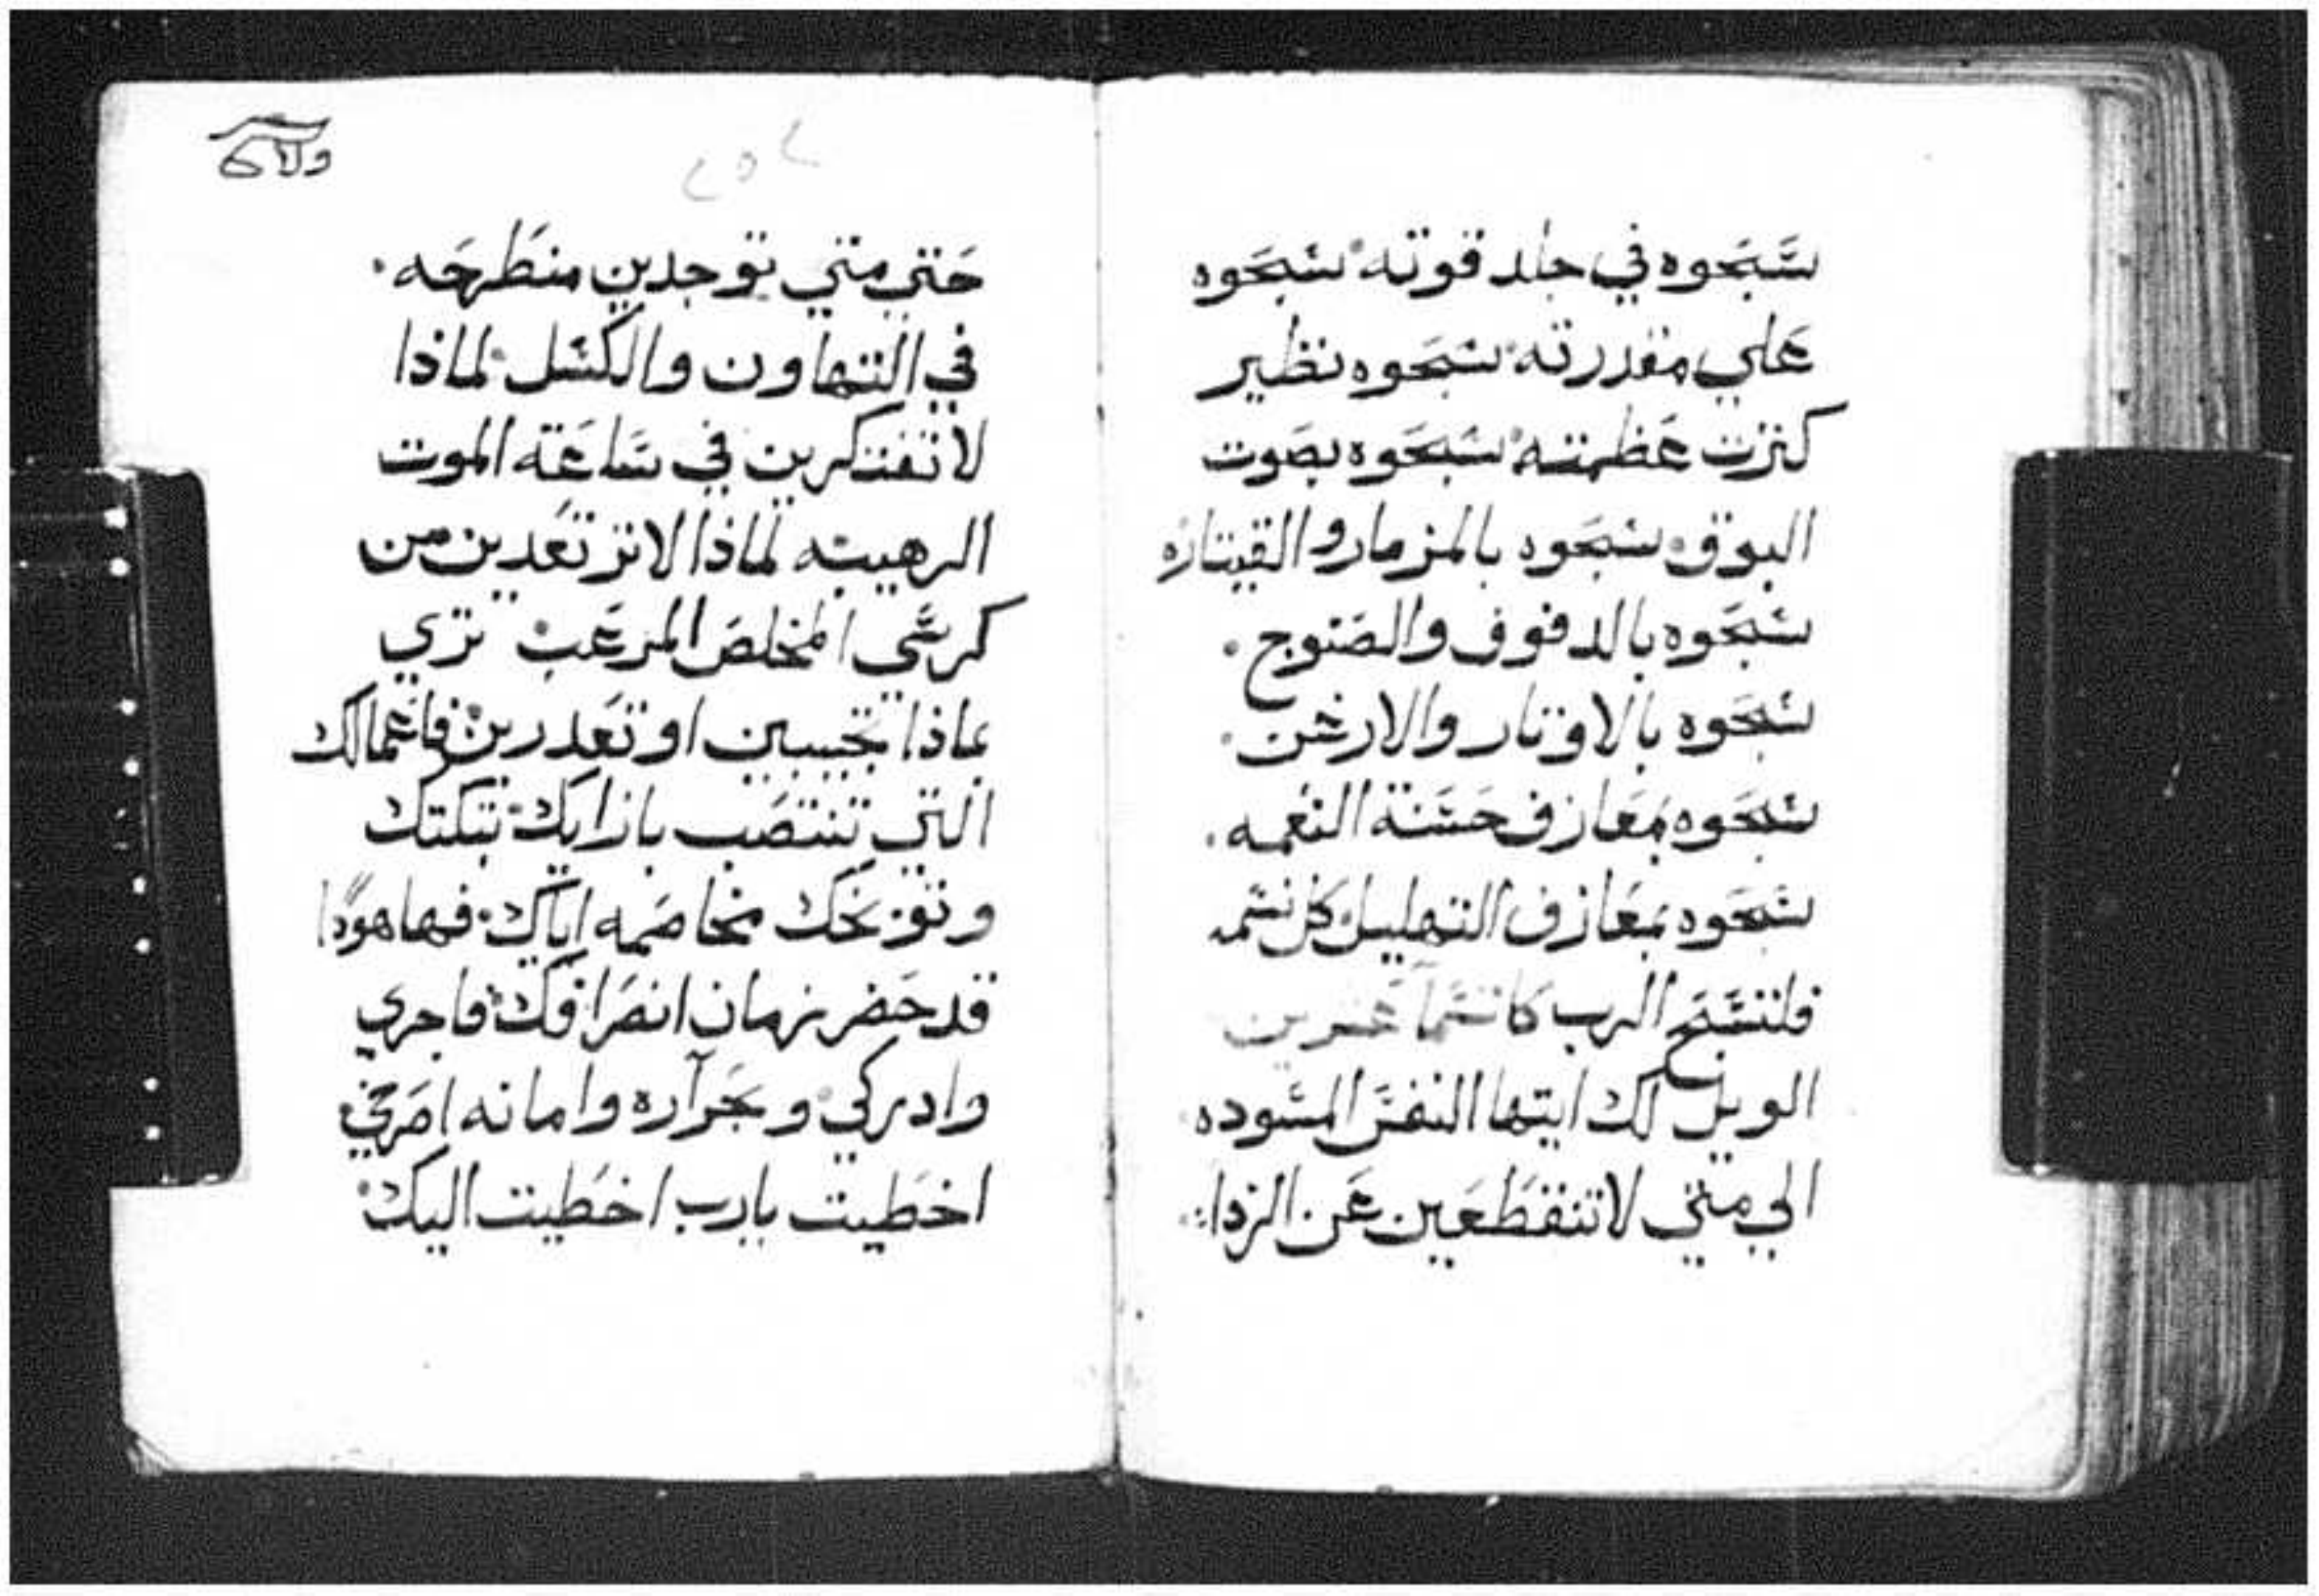 سَبحَوه في جلد قوته سَبحَوه
عَلي مقدرته سَبحَوه نظير
كثرت عَظمته سَبحَوه بصَوت
البوق سَبحَوه بالمزمار والقيتاره
سَبحَوه بالدفوف والصَنوج
سَبحَوه بالاوتار والارغن
سَبحَوه بمَعازف حَسَنة النغمه
سَبحَوه بمَعازف التهليل كل نسَمه
فلتسَبح الرب
الويل لك ايتها النفسَ المسَوده
الي متي لا تنقطَعَين عَن الرداة
حَتي متي توجدين منطَرحَه
في التهاون والكسَل لماذا
لا تفتكرين في سَاعَة الموت
الرهيبه لماذا لا ترتعَدين من
كرسَي المخلصَ المرعَب تري
بماذا تجيبين او تعَدرين فاعَمالك
التي تنتصَب بازايك تبكتك
وتوبخك مخاصَمه اياك فها هوذا
قد حَضر زمان انصَرافك فاجري
وادركي وبحَراره وامانه اصَرخي
اخطَيت يارب اخطَيت اليك